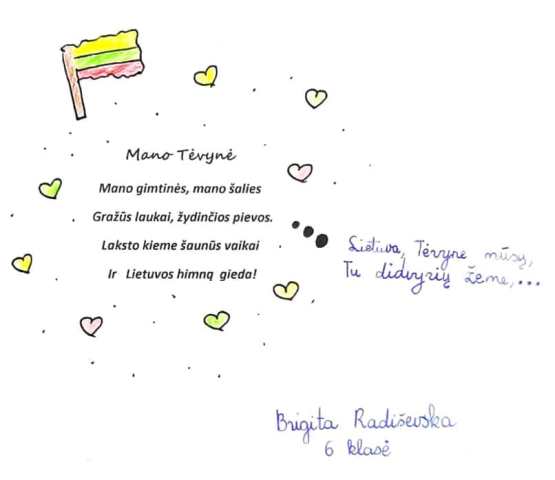 Mano Tėvynė
Mano gimtinės, mano šalies
Gražūs laukai, žydinčios pievos.
Laksto kieme šaunūs vaikai
Ir Lietuvos himną gieda!
Lietuva, Tėvyne mūsų,
Tu didvyrių žeme,...
Brigita Radiševska
6 klasė